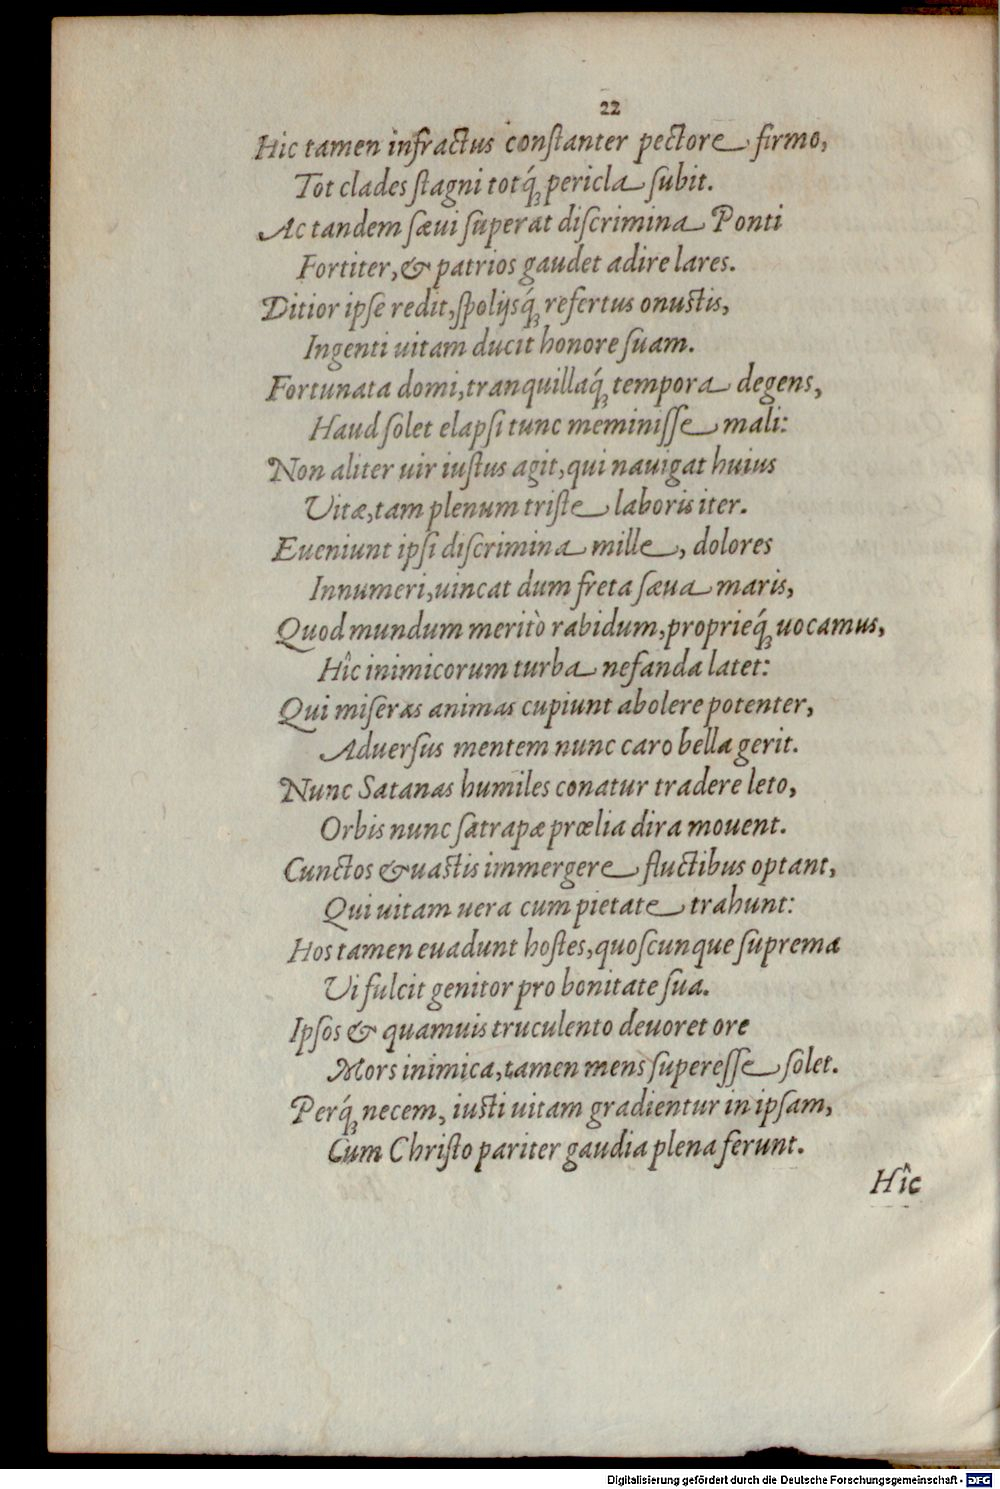 22
Hic tamen infractus constanter pectore firmo,
Tot clades ſtagni totq́ꝫ pericla ſubit.
Ac tandem ſæui ſuperat diſcrimina Ponti
Fortiter, & patrios gaudet adire lares.
Ditior ipſe redit, ſpolijsq́ꝫ refertus onustis,
Ingenti uitam ducit honore ſuam.
Fortunata domi, tranquillaq́ꝫ tempora degens,
Haud ſolet elapſi tunc meminiſſe mali:
Non aliter uir iuſtus agit, qui nauigat huius
Vitæ, tam plenum triſte laboris iter.
Eueniunt ipſi diſcrimina mille, dolores
Innumeri, uincat dum freta ſæua maris,
Quod mundum meritò rabidum, proprieq́ꝫ uocamus,
Hîc inimicorum turba nefanda latet:
Qui miſeras animas cupiunt abolere potenter,
Aduerſus mentem nunc caro bella gerit.
Nunc Satanas humiles conatur tradere leto,
Orbis nunc ſatrapæ prœlia dira mouent.
Cunctos & uastis immergere fluctibus optant,
Qui uitam uera cum pietate trahunt:
Hos tamen euadunt hoſtes, quoſcunque ſuprema
Vi fulcit genitor pro bonitate ſua.
Ipſos & quamuis truculento deuoret ore
Mors inimica, tamen mens ſupereſſe ſolet.
Perq́ꝫ necem, iusti uitam gradientur in ipſam,
Cum Chriſto pariter gaudia plena ferunt.
Hîc
Digitalisierung gefördert durch die Deutsche Forschungsgemeinschaft - DFG